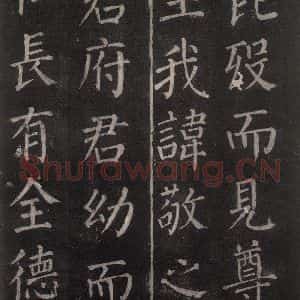 歿而見尊
我諱敬之
君府君幼而
長有全德
Shufawang.CN